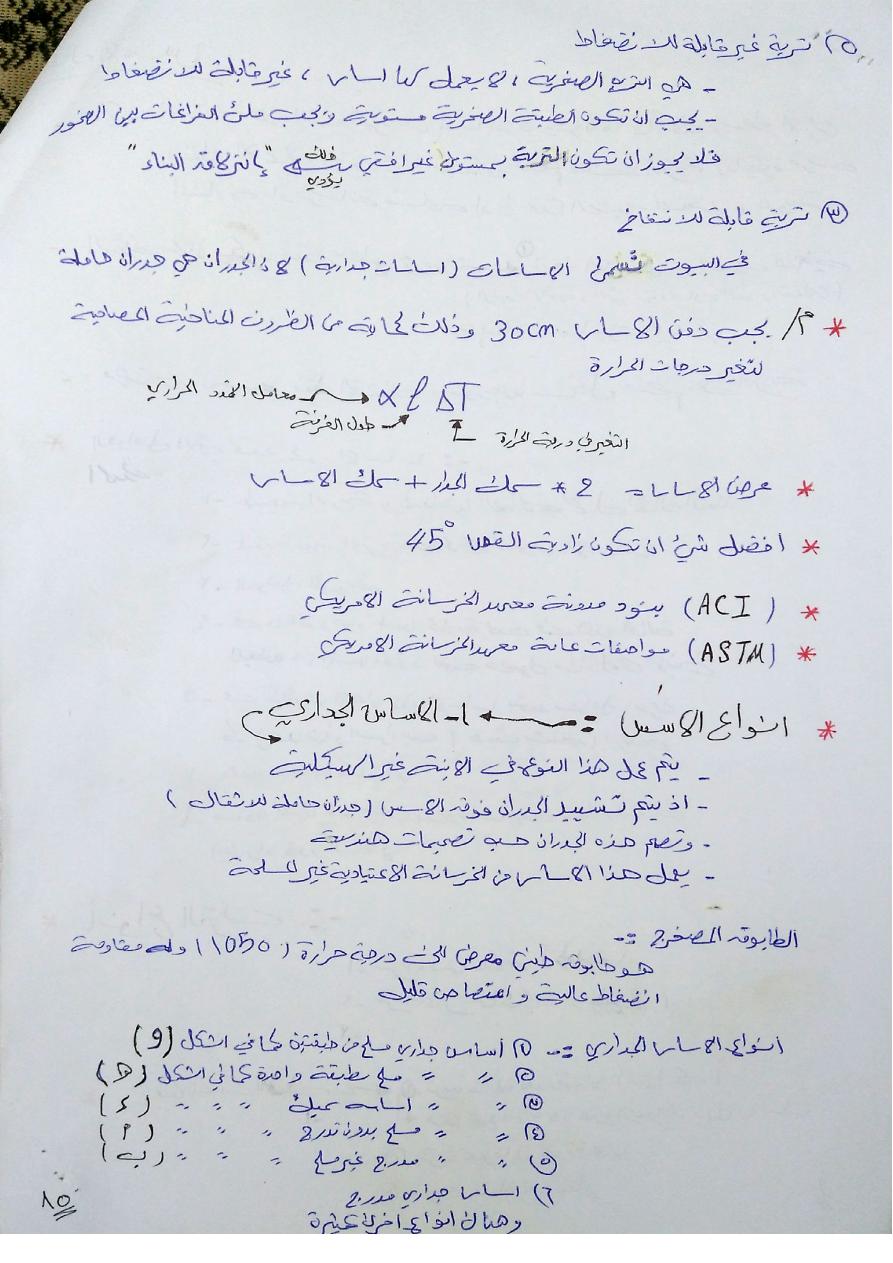 ٢) تربة غير قابلة للانضغاط
- هي التربة الصخرية ، لا يعمل لها اساس ، غير قابلة للانضغاط
- يجب ان تكون الطبقة الصخرية مستوية ويجب ملئ الفراغات بين الصخور
فلا يجوز ان تكون التربة بمستوى غير افقي ذلك يؤدي "إنزلاق البناء"
٣) تربة قابلة للانتفاخ
في البيوت تسمى الاساسات (اساسات جدارية) لان الجدران هي جدران حاملة
* م/ يجب دفن الاساس 30cm وذلك لحمايته من الظروف المناخية المصاحبة
لتغير درجات الحرارة
معامل التمدد الحراري → α ℓ ΔT
طول الغرفة
التغير في درجة الحرارة
* عرض الاساس = 2 * سمك الجدار + سمك الاساس
* افضل شيء ان تكون زاوية القص 45°
* (ACI) بنود مدونة معهد الخرسانة الامريكي
* (ASTM) مواصفات عامة معهد الخرسانة الامريكي
* انواع الاسس := ← ١- الاساس الجداري
- يتم عمل هذا النوع في الابنة غير الهيكلية
- اذ يتم تشييد الجدران فوق الاسس (جدران حاملة للاثقال)
- وتصمم هذه الجدران حسب تصميمات هندسية
- يعمل هذا الاساس من الخرسانة الاعتيادية غير المسلحة
الطابوق المصخرج :-
هو طابوق طيني معرض الى درجة حرارة (١٠٥٠) وله مقاومة
انضغاط عالية و امتصاص قليل
انواع الاساس الجداري :- ١) أساس جداري مسلح من طبقتين كما في الشكل (و)
٢) " " مسلح بطبقة واحدة كما في الشكل (ه)
٣) " " اساسه سميك " " " (د)
٤) " " مسلح بدون تدرج " " " (أ)
٥) " " مدرج غير مسلح " " " (ب)
٦) اساس جداري مدرج
وهناك انواع اخرى كثيرة
١٥